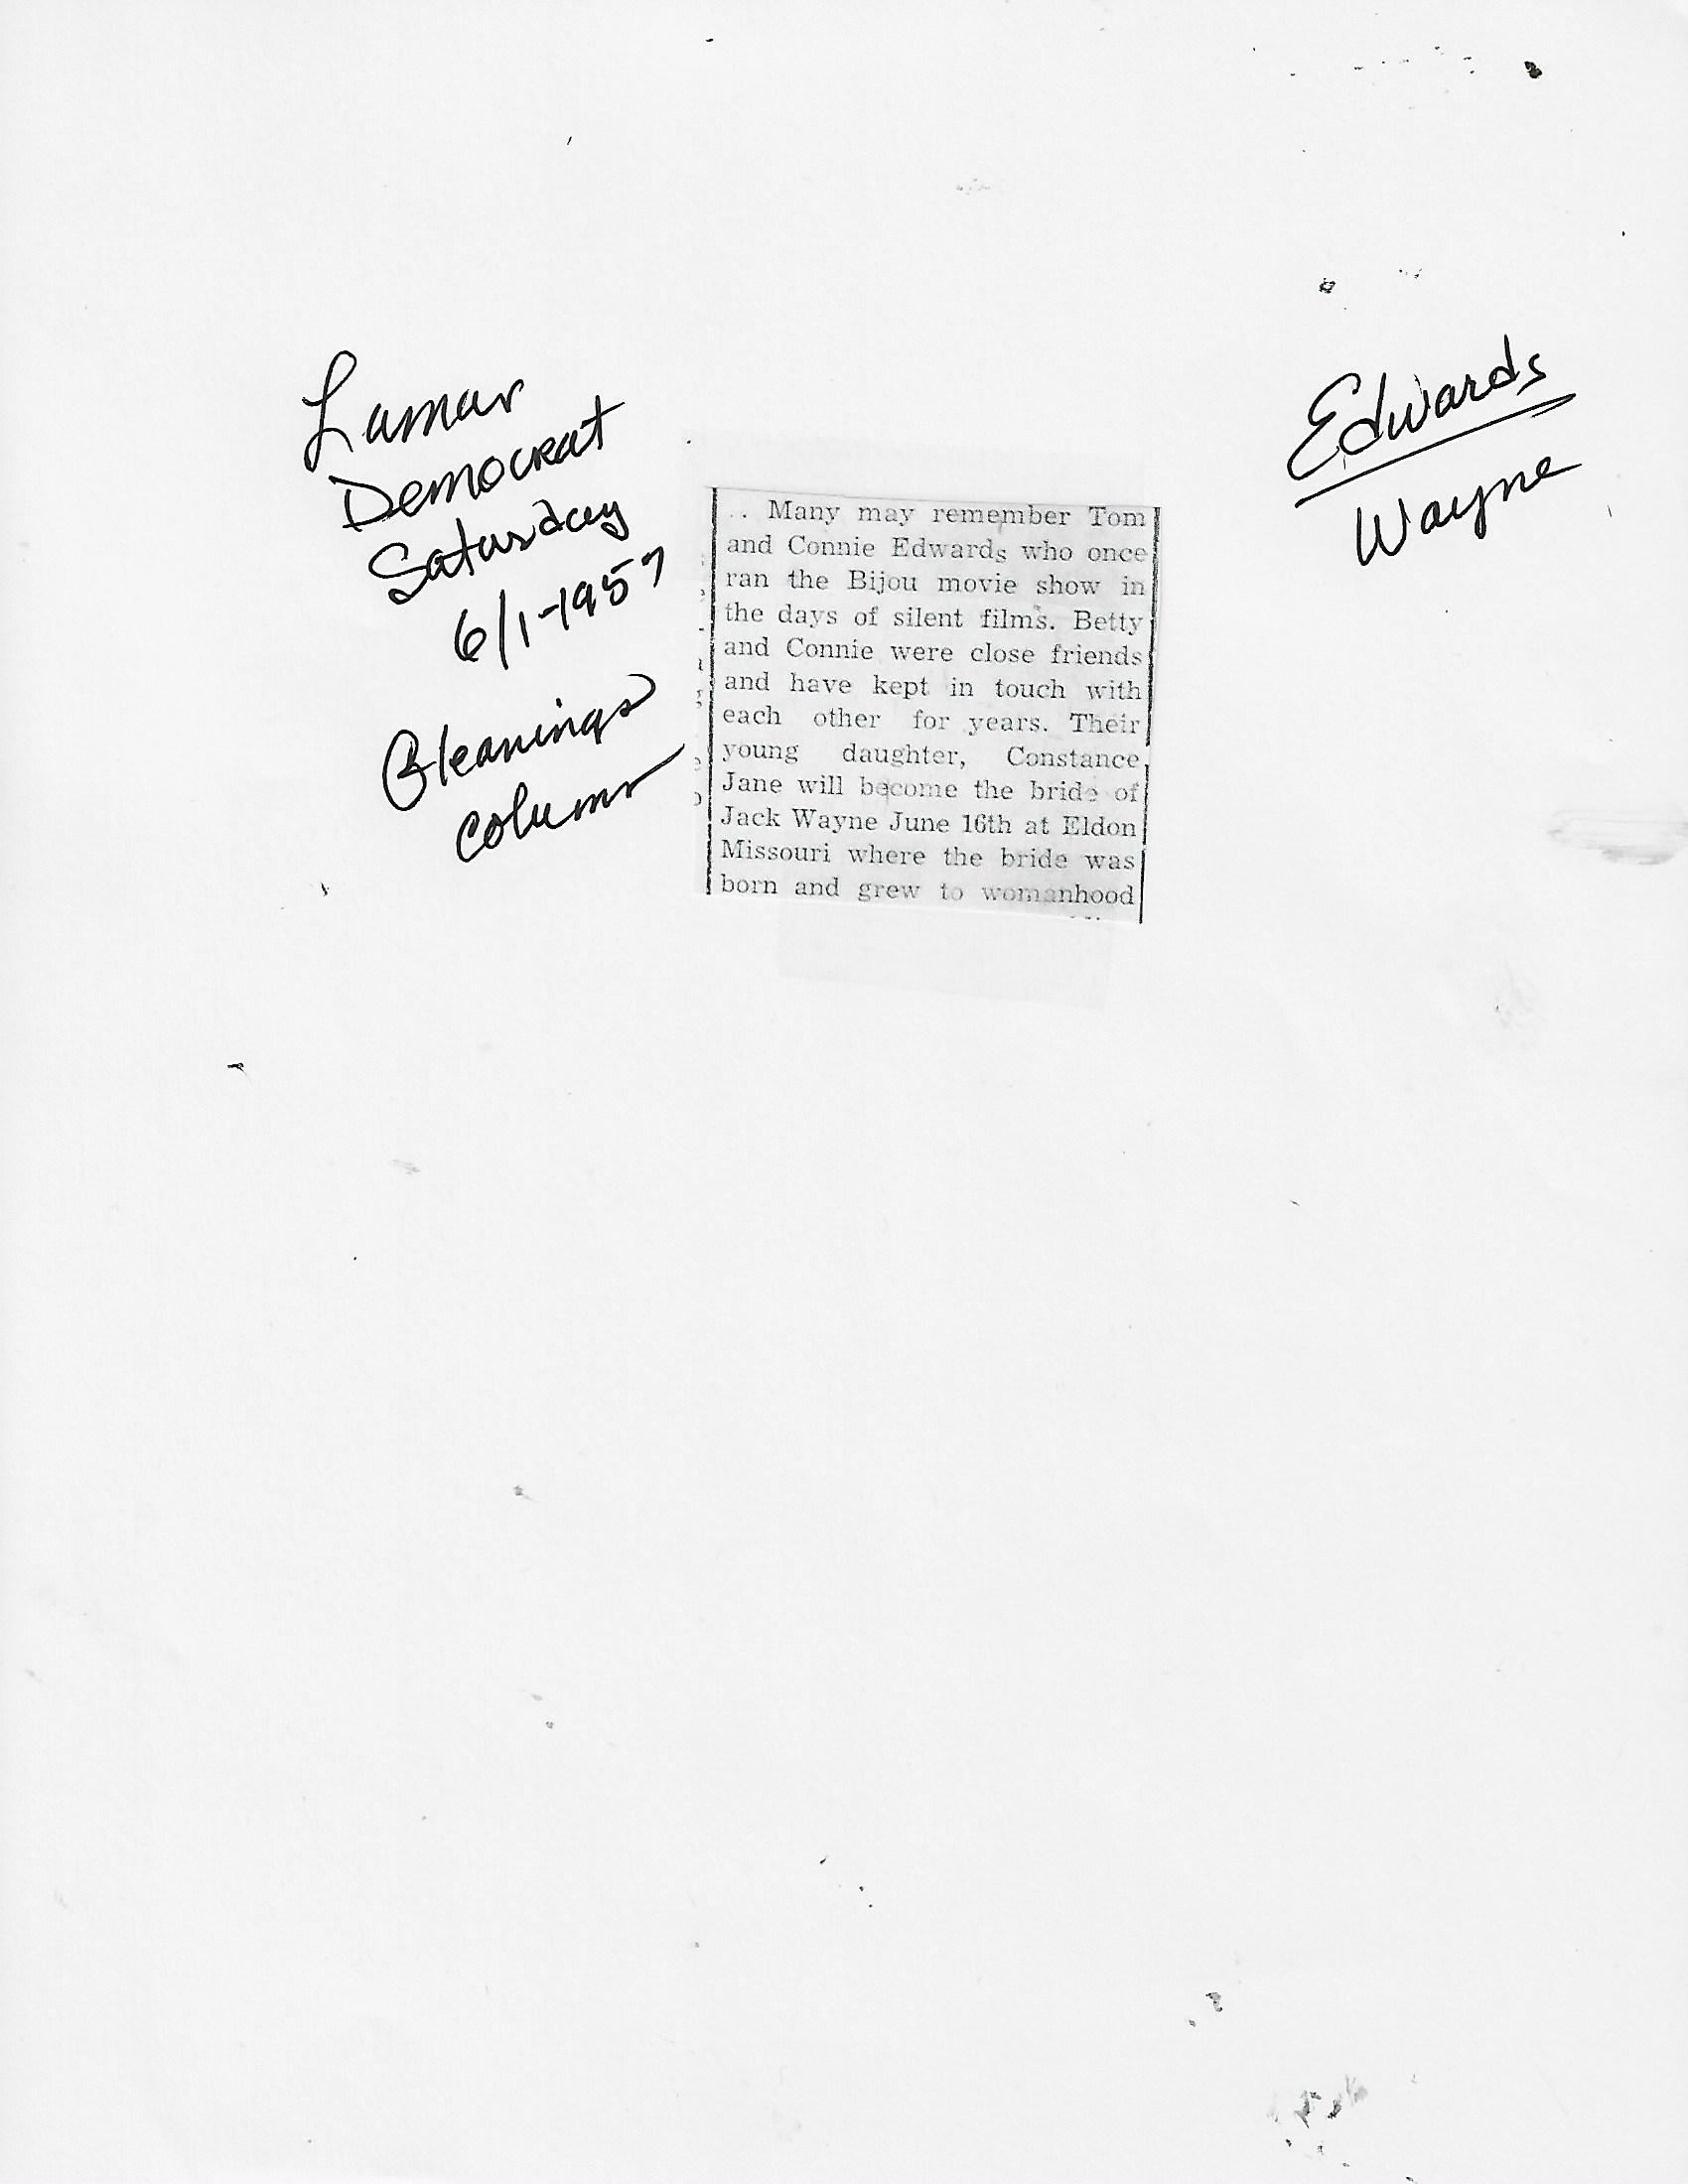 Lamar
Democrat
Saturday
6/1-1957
Gleanings
column
Edwards
Wayne
.. Many may remember Tom
and Connie Edwards who once
ran the Bijou movie show in
the days of silent films. Betty
and Connie were close friends
and have kept in touch with
each other for years. Their
young daughter, Constance
Jane will become the bride of
Jack Wayne June 16th at Eldon
Missouri where the bride was
born and grew to womanhood